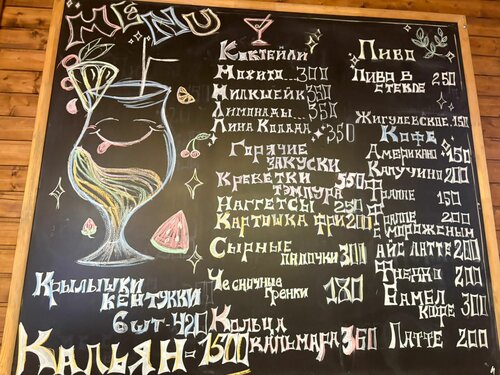 MENU
Коктейли
Мохито...300
Милкшейк 350
Лимонады... 350
Пина Колада... 350
Горячие
закуски
Креветки
темпура 550
Наггетсы 250
Картошка фри 200
Сырные
палочки 300
Чесночные
гренки 180
Кольца
кальмара 360
Крылышки
кентукки
6 шт-420
Кальян-1500
Пиво
Пиво в
стекле 250
Жигулевское.150
Кофе
Американо 150
Капучино 200
Фраппе 150
Фраппе
с мороженым 200
Айс латте 200
Фредно 200
Кофе 300
Латте 200